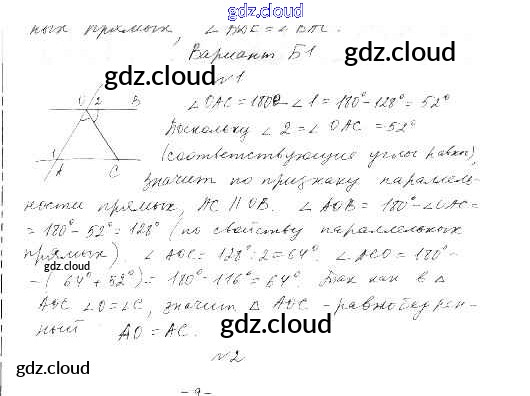 gdz.cloud
ных прямых, ∠ВДЕ = ∠
Вариант Б1
gdz.cloud gdz.cloud
№1
O 2 B
1 A C
∠OAC = 180° - ∠1 = 180° - 128° = 52°
Поскольку ∠2 = ∠OAC = 52°
(соответствующие углы равны),
gdz.cloud gdz.cloud
значит по признаку параллель-
ности прямых, AC || OB. ∠AOB = 180° - ∠OAC =
= 180° - 52° = 128° (по свойству параллельных
прямых). ∠AOC = 128° : 2 = 64°. ∠ACO = 180° -
gdz.cloud
- (64° + 52°) = 180° - 116° = 64°. Так как в △
AOC ∠O = ∠C, значит △ AOC - равнобедрен-
ный AO = AC.
gdz.cloud gdz.cloud
№2
gdz.cloud
- 9 -